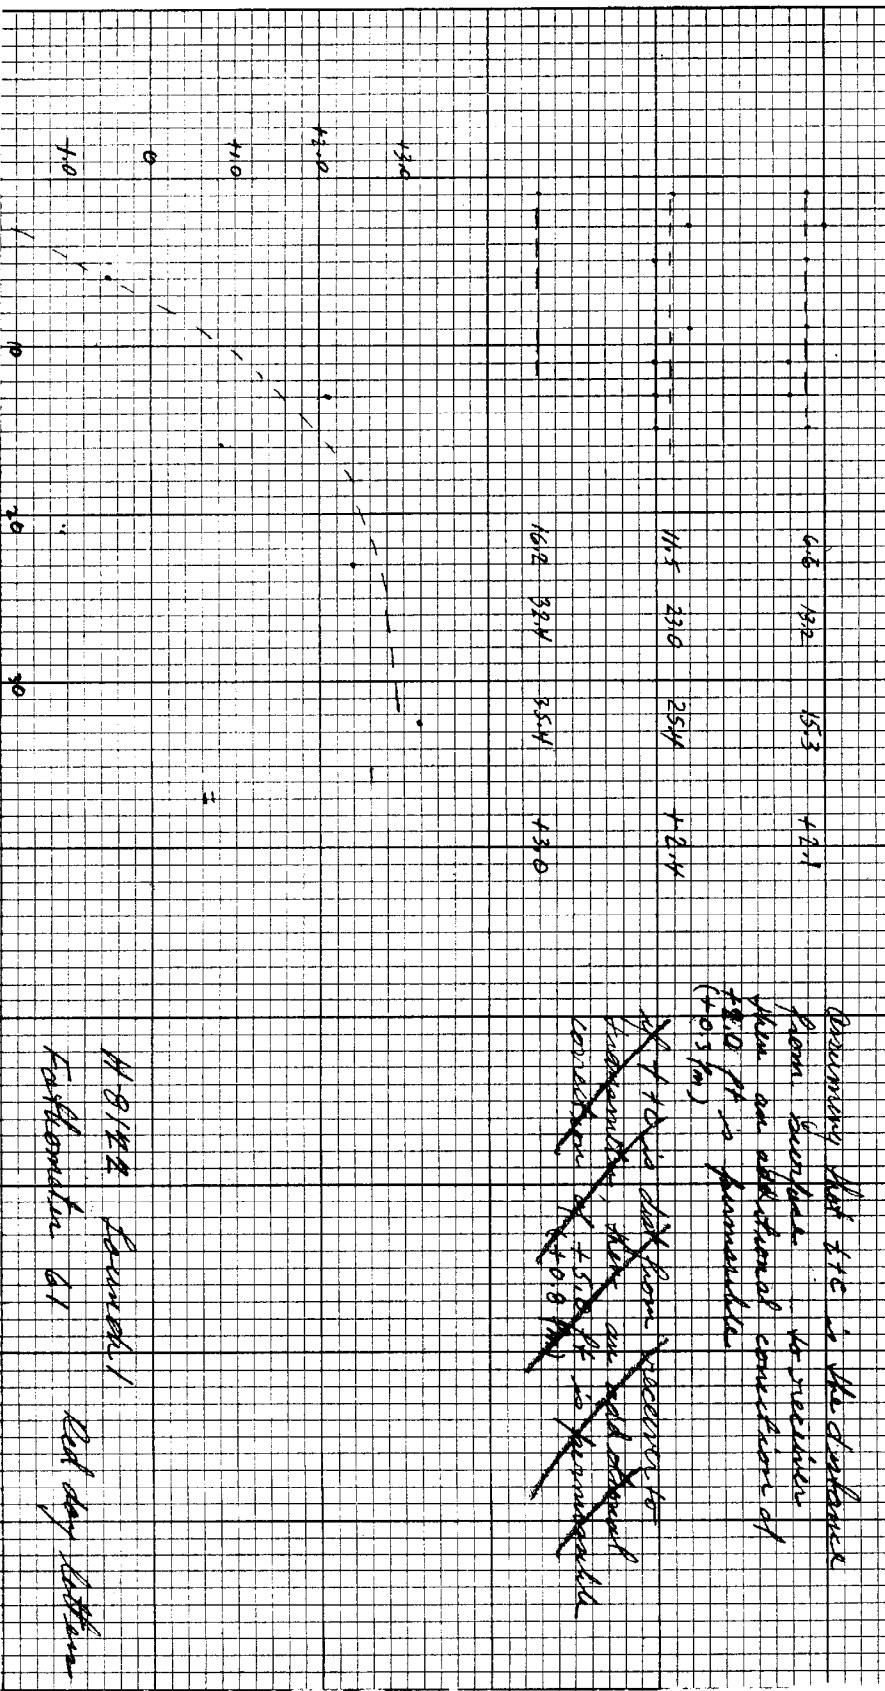 6.6 13.2 15.3 +2.1
11.5 23.0 25.4 +2.4
16.2 32.4 35.4 +3.0
+3.0
+2.0
+1.0
0
-1.0
10
20
30
Assuming that t+c is the distance
from surface to receiver
then an additional correction of
+2.0 ft is permissible
(+0.3 fm)
if t+c is dist from receiver to
transmitter, then an additional
correction of +5.0 ft is permissible
(+0.8 fm)
H-8122 Launch 1
Fathometer 61 Red day letters